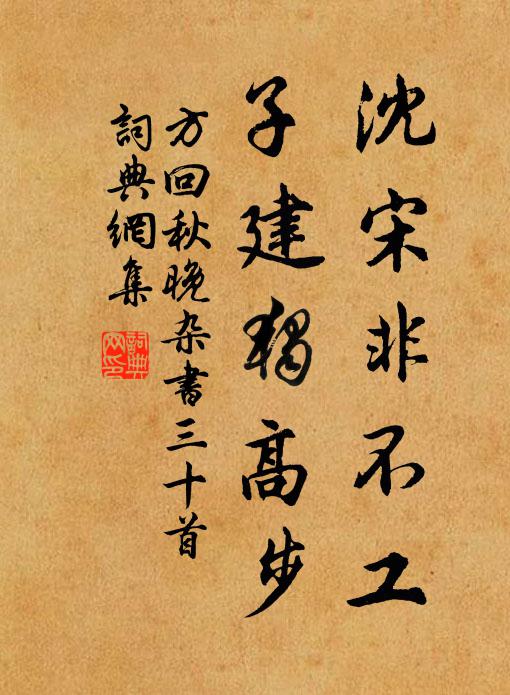 沈宋非不工
子建獨高步
方回秋晚杂書三十首
詞典網集
詞典
网印